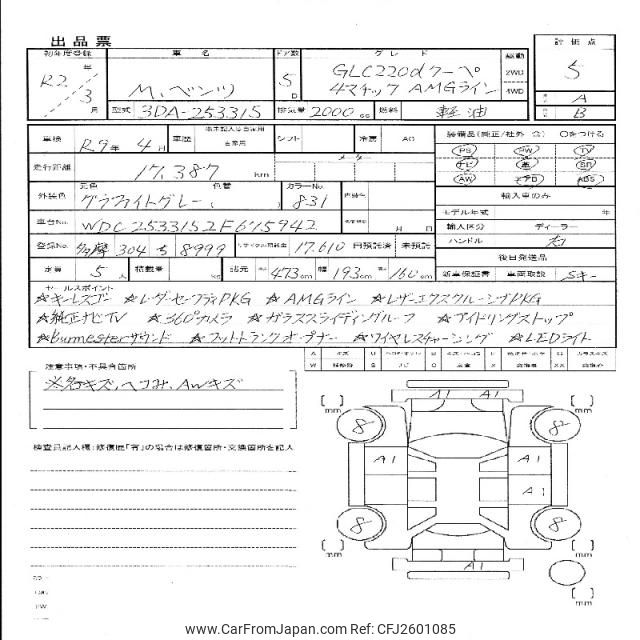 出品票
初年度登録 車名 ドア数 グレード 駆動 評価点
R2年 3月 M.ベンツ 5D GLC220dクーペ 2WD 5
4マチック AMGライン 4WD A
型式 3DA-253315 排気量 2000cc 燃料 軽油 B
車検 R9年 4月 車歴 自家用 シフト 冷房 AC 装備品(純正/社外 含) ○をつける
走行距離 17,387 km メーター PS PW TV
ナビ 革 SR
AW エアB ABS
外装色 元色 グラファイトグレー 色替 ( ) カラーNo. 831 輸入車のみ
モデル年式 年
車台No. WDC2533152F675942 月 日 輸入区分 ディーラー
登録No. 多摩 304 ち 8999 リサイクル預託金 17,610 円預託済 未預託 ハンドル 右
後日発送品
定員 5人 積載量 kg 諸元 長 473cm 幅 193cm 高 160cm 新車保証書 車両取説 Sキー
セールスポイント
☆キーレスゴー ☆レーダーセーフティPKG ☆AMGライン ☆レザーエクスクルーシブPKG
☆純正ナビTV ☆360°カメラ ☆ガラススライディングルーフ ☆アイドリングストップ
☆Burmesterサウンド ☆フットトランクオープナー ☆ワイヤレスチャージング ☆LEDライト
注意事項・不具合箇所
※各キズ、ヘコみ、AWキズ
検査員記入欄:修復歴「有」の場合は修復箇所・交換箇所を記入
A1 A1
[ ] mm [ ] mm
8 8
A1 A1
A1
8 8
[ ] mm A1 [ ] mm
www.CarFromJapan.com Ref: CFJ2601085